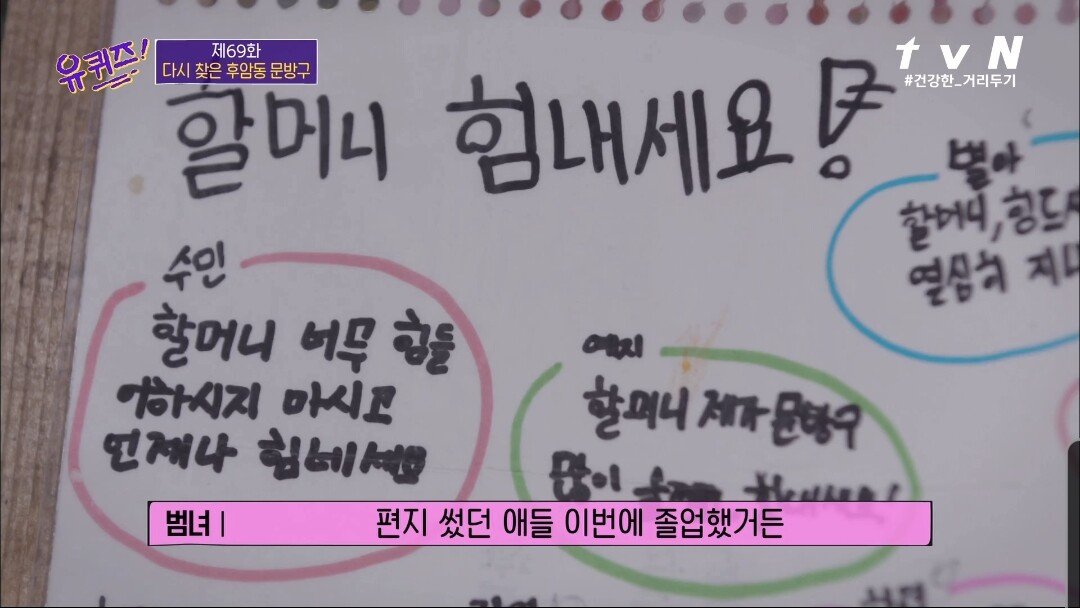 유퀴즈!
제69화
다시 찾은 후암동 문방구
tvN
#건강한_거리두기
할머니 힘내세요!
별아
할머니, 힘드
열심히 지내
수인
할머니 너무 힘들
어하시지 마시고
언제나 힘내세요
예지
할머니 제가 문방구
많이
범녀 | 편지 썼던 애들 이번에 졸업했거든